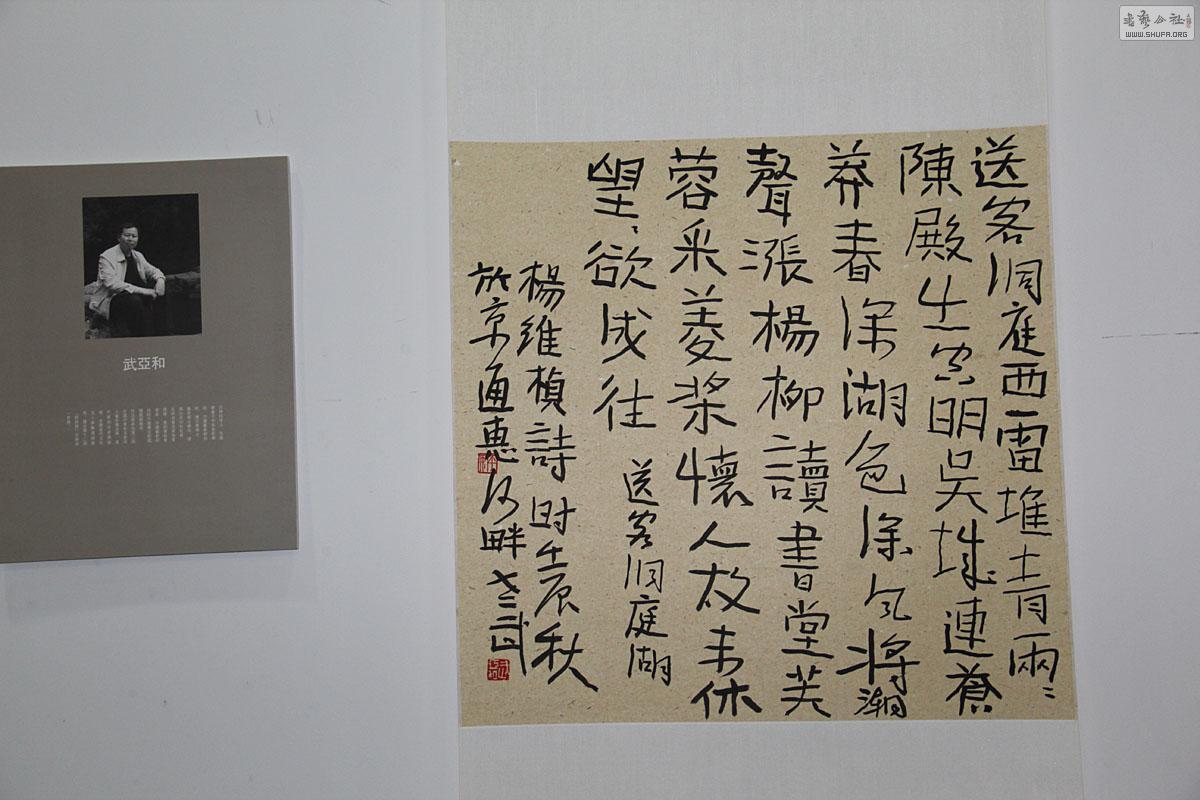 送客洞庭西雷堆青兩〻
陳殿出空明吴城連蒼
莽春深湖色深风将潮
聲漲楊柳讀書堂芙
蓉采菱桨懷人故未休
望〻欲成往 送客洞庭湖
楊維楨詩时壬辰秋
於京通惠河畔
武亞和
書藝公社
WWW.SHUFA.ORG